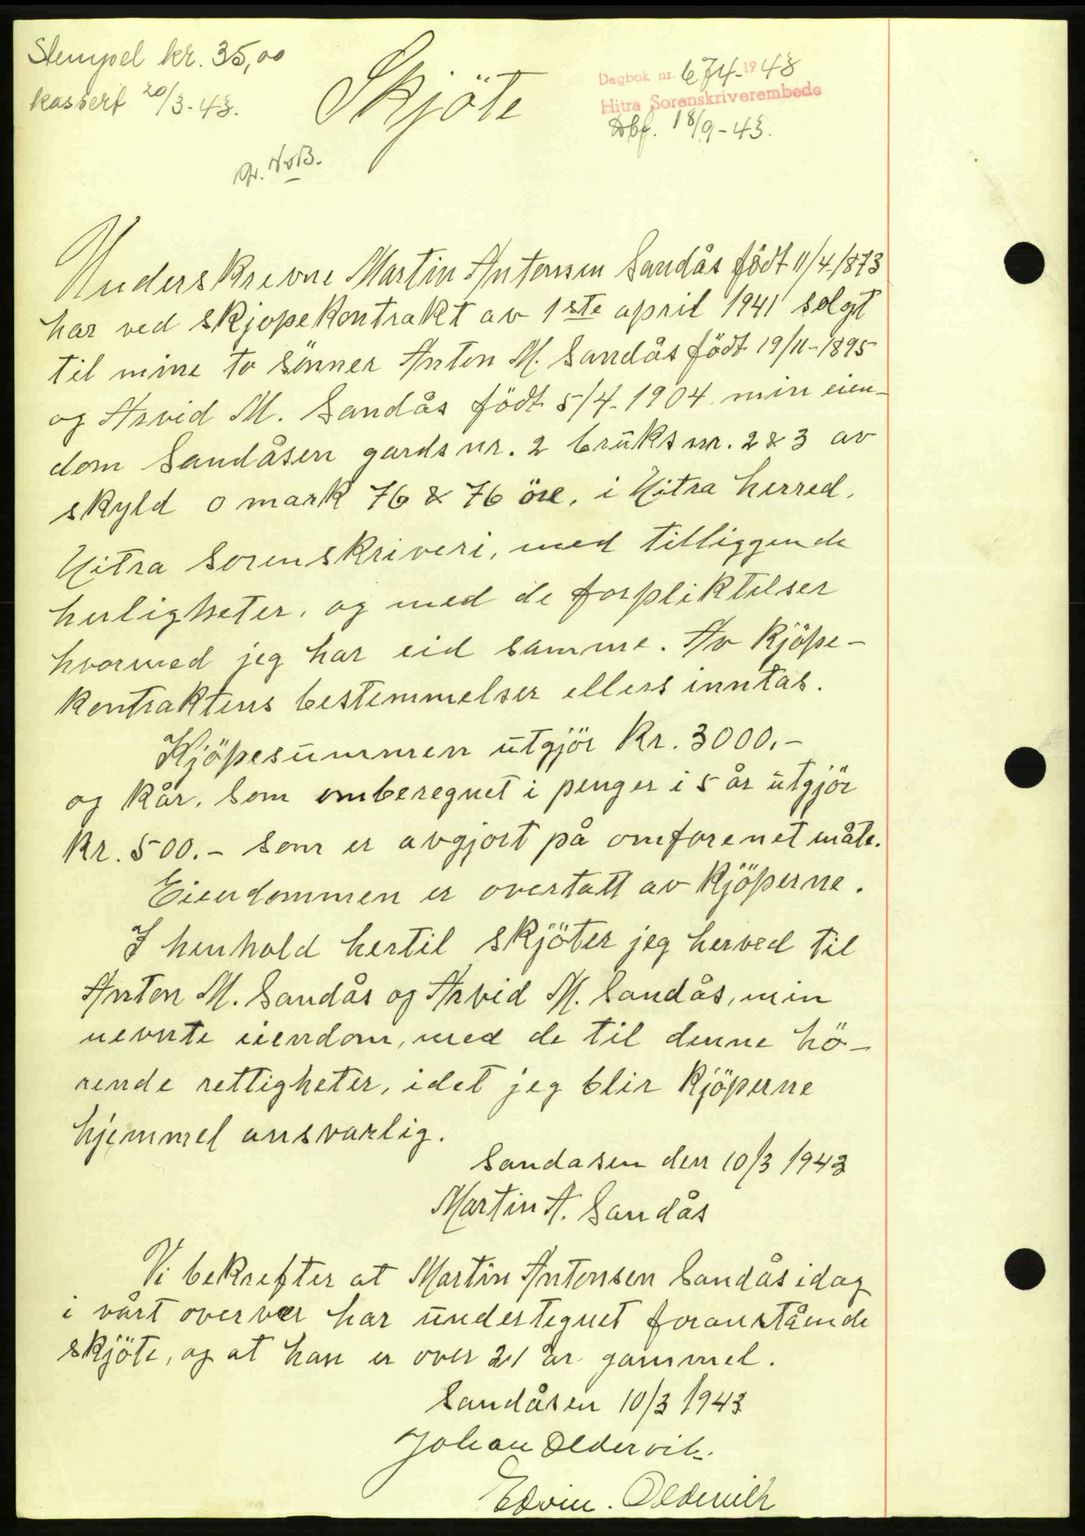 Stempel kr. 35,00
kassert 20/3-43.
Skjöte
Dagbok nr. 674-1943
Hitra Sorenskriverembede
Dbf. 18/9-43.
Underskrevne Martin Antonsen Sandås födt 11/4/873
har ved skjøpekontrakt av 1ste april 1941 solgt
til mine to sönner Anton M. Sandås födt 19/11-1895
og Arvid M. Sandås födt 5/4-1904 min eien-
dom Sandåsen gards nr. 2 brüks nr. 2 & 3 av
skyld 0 mark 76 & 76 öre, i Hitra herred,
Hitra Sorenskriveri, med tilliggende
herligheter, og med de forpliktelser
hvormed jeg har eid samme. Av kjöpe-
kontraktens bestemmelser ellers inntas.
Kjöpesummen ütgjör kr. 3000.-
og kår, som omberegnet i penger i 5 år ütgjör
kr. 500.- som er avgjort på omforenet måte.
Eiendommen er overtatt av kjöperne.
I henhold hertil skjöter jeg herved til
Anton M. Sandås og Arvid M. Sandås, min
nevnte eiendom, med de til denne hö-
rende rettigheter, idet jeg blir kjöperne
hjemmel ansvarlig.
Sandasen den 10/3 1943
Martin A. Sandås
Vi bekrefter at Martin Antonsen Sandås idag
i vårt overvær har ündertegnet foranstående
skjöte, og at han er over 21 år gammel.
Sandåsen 10/3 1943
Johan Oldervik.
Edvin. Oldervik